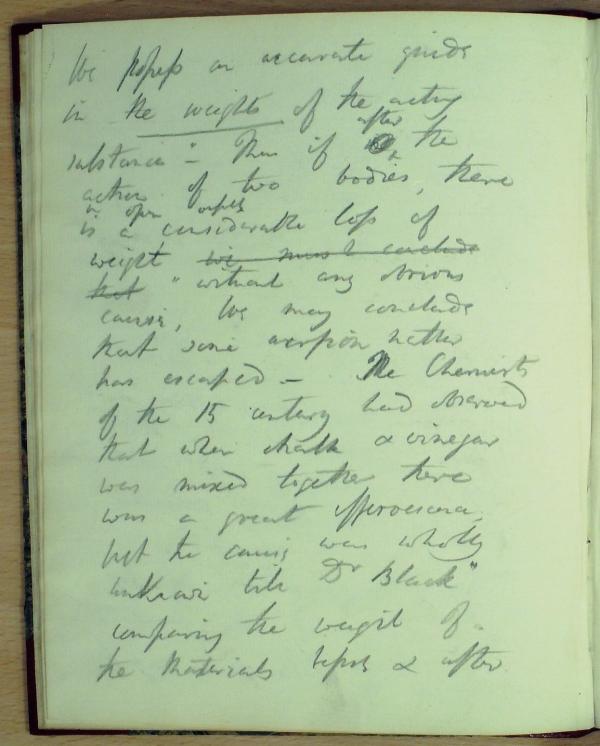 We possess an accurate guide
in the weights of the acting
substances" – Thus if after the
action of two bodies, there
in open vessels
is a considerable loss of
weight we must conclude
that "without any obvious
cause, We may conclude
that some aeriform matter
has escaped – The Chemists
of the 15 century had observed
that when chalk & vinegar
was mixed together there
was a great effervescence,
but the cause was wholly
unknown till Dr Black"
comparing the weight of
the Materials before & after